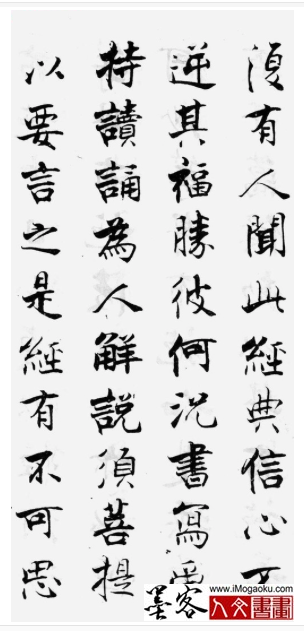 復有人聞此經典信心不
逆其福勝彼何況書寫受
持讀誦為人解說須菩提
以要言之是經有不可思
墨客
www.iMogaoku.com
人文書畫